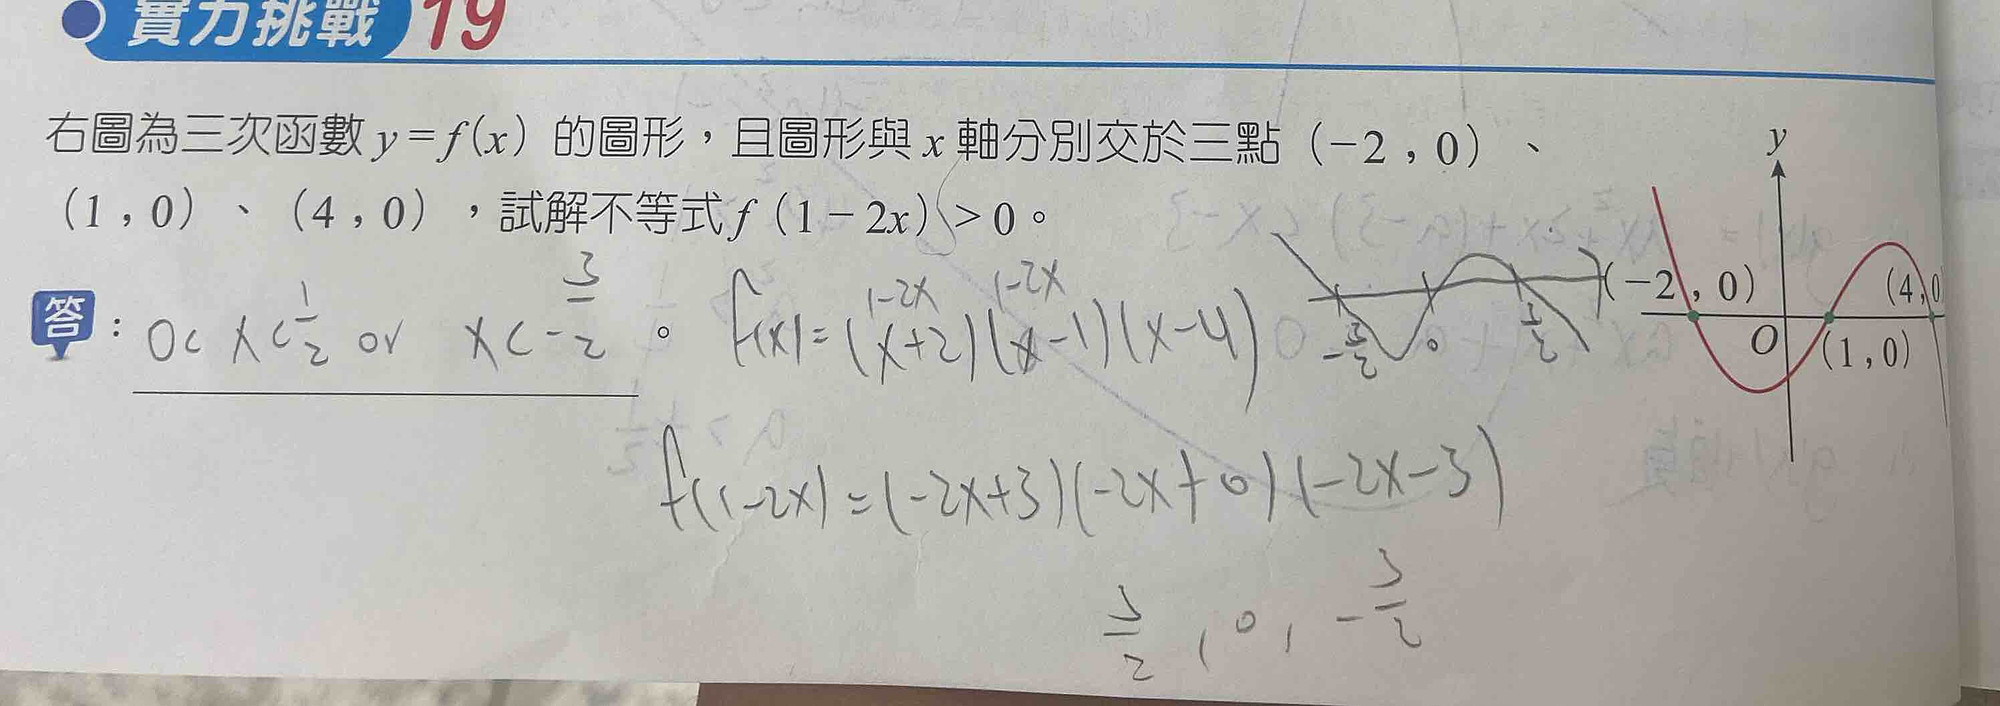 實力挑戰 19
右圖為三次函數 y=f(x) 的圖形，且圖形與 x 軸分別交於三點（-2，0）、
（1，0）、（4，0），試解不等式 f（1-2x）>0。
答：0< x <1/2 or x < -3/2。
1-2x 1-2x
f(x)=(x+2)(x-1)(x-4)
-3/2 0 3/2
y
(-2,0)
(4,0
O
(1,0)
f(1-2x)=(-2x+3)(-2x+0)(-2x-3)
3/2, 0, -3/2